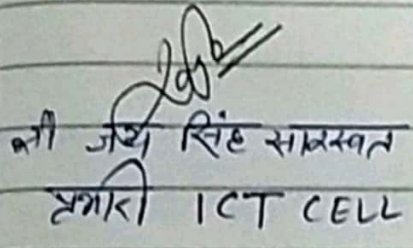 श्री जय सिंह सारस्वत
प्रभारी ICT CELL